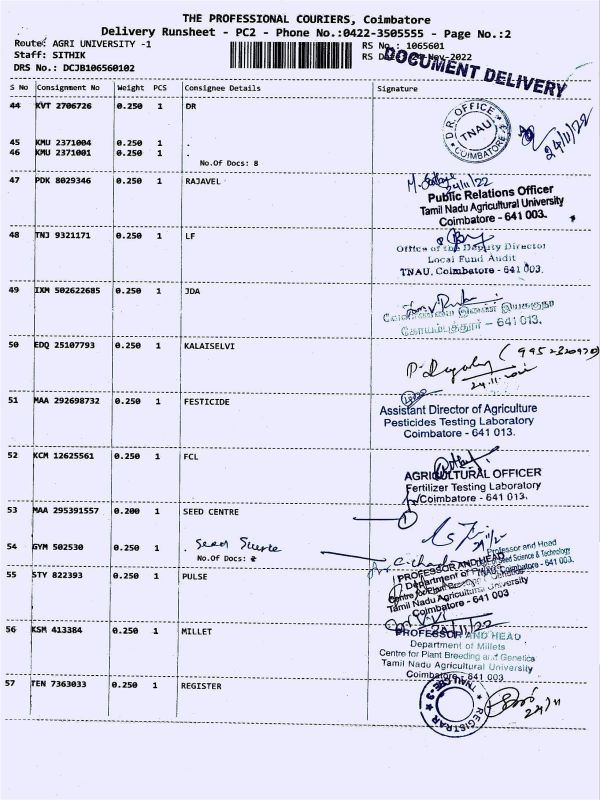 THE PROFESSIONAL COURIERS, Coimbatore
Delivery Runsheet - PC2 - Phone No.:0422-3505555 - Page No.:2
Route: AGRI UNIVERSITY -1
RS No. : 1065601
Staff: SITHIK
RS D Nov-2022
DRS No.: DCJB106560102
DOCUMENT DELIVERY
S No Consignment No Weight PCS Consignee Details Signature
44 KVT 2706726 0.250 1 DR
D.R. OFFICE TNAU COIMBATORE
24/11/22
45 KMU 2371004 0.250 1 .
46 KMU 2371001 0.250 1 .
No.Of Docs: 8
47 PDK 8029346 0.250 1 RAJAVEL
24/11/22
Public Relations Officer
Tamil Nadu Agricultural University
Coimbatore - 641 003.
48 TNJ 9321171 0.250 1 LF
Office of the Deputy Director
Local Fund Audit
TNAU, Coimbatore - 641 003.
49 IXM 502622685 0.250 1 JDA
வேளாண்மை இணை இயக்குநர்
கோயம்புத்தூர் – 641 013.
50 EDQ 25107793 0.250 1 KALAISELVI
24.11
51 MAA 292698732 0.250 1 FESTICIDE
Assistant Director of Agriculture
Pesticides Testing Laboratory
Coimbatore - 641 013.
52 KCM 12625561 0.250 1 FCL
AGRICULTURAL OFFICER
Fertilizer Testing Laboratory
Coimbatore - 641 013.
53 MAA 295391557 0.200 1 SEED CENTRE
1
54 GYM 502530 0.250 1 .
No.Of Docs:
Professor and Head
Seed Science & Technology
TNAU, Coimbatore - 641 003.
55 STY 822393 0.250 1 PULSE
PROFESSOR AND HEAD
Department of
Centre for Plant Breeding & Genetics
Tamil Nadu Agricultural University
Coimbatore - 641 003
56 KSM 413384 0.250 1 MILLET
24/11/22
PROFESSOR AND HEAD
Department of Millets
Centre for Plant Breeding and Genetics
Tamil Nadu Agricultural University
Coimbatore - 641 003
57 TEN 7363033 0.250 1 REGISTER
REGISTRAR TNAU, CBE-3
24/11